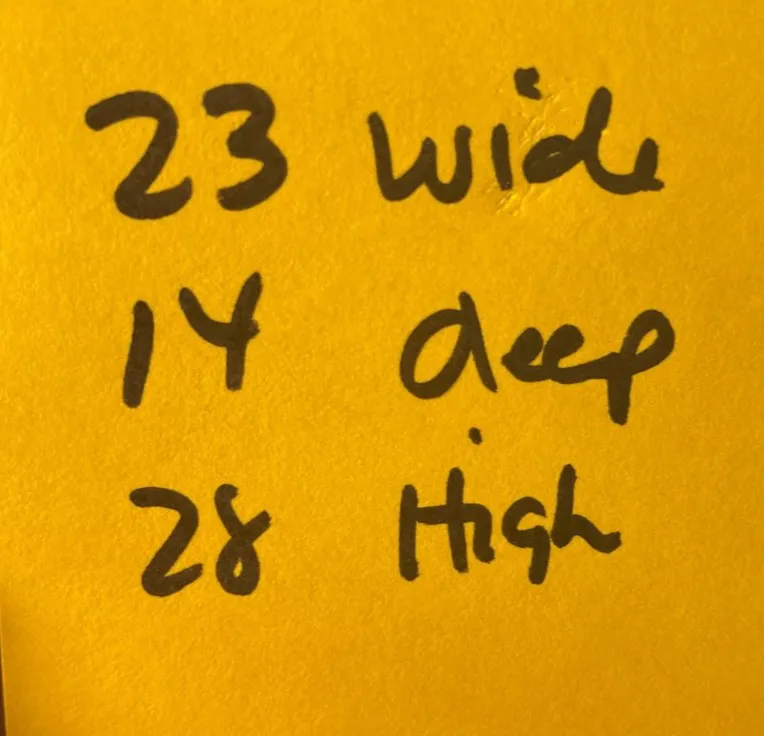 23 wide
14 deep
28 High